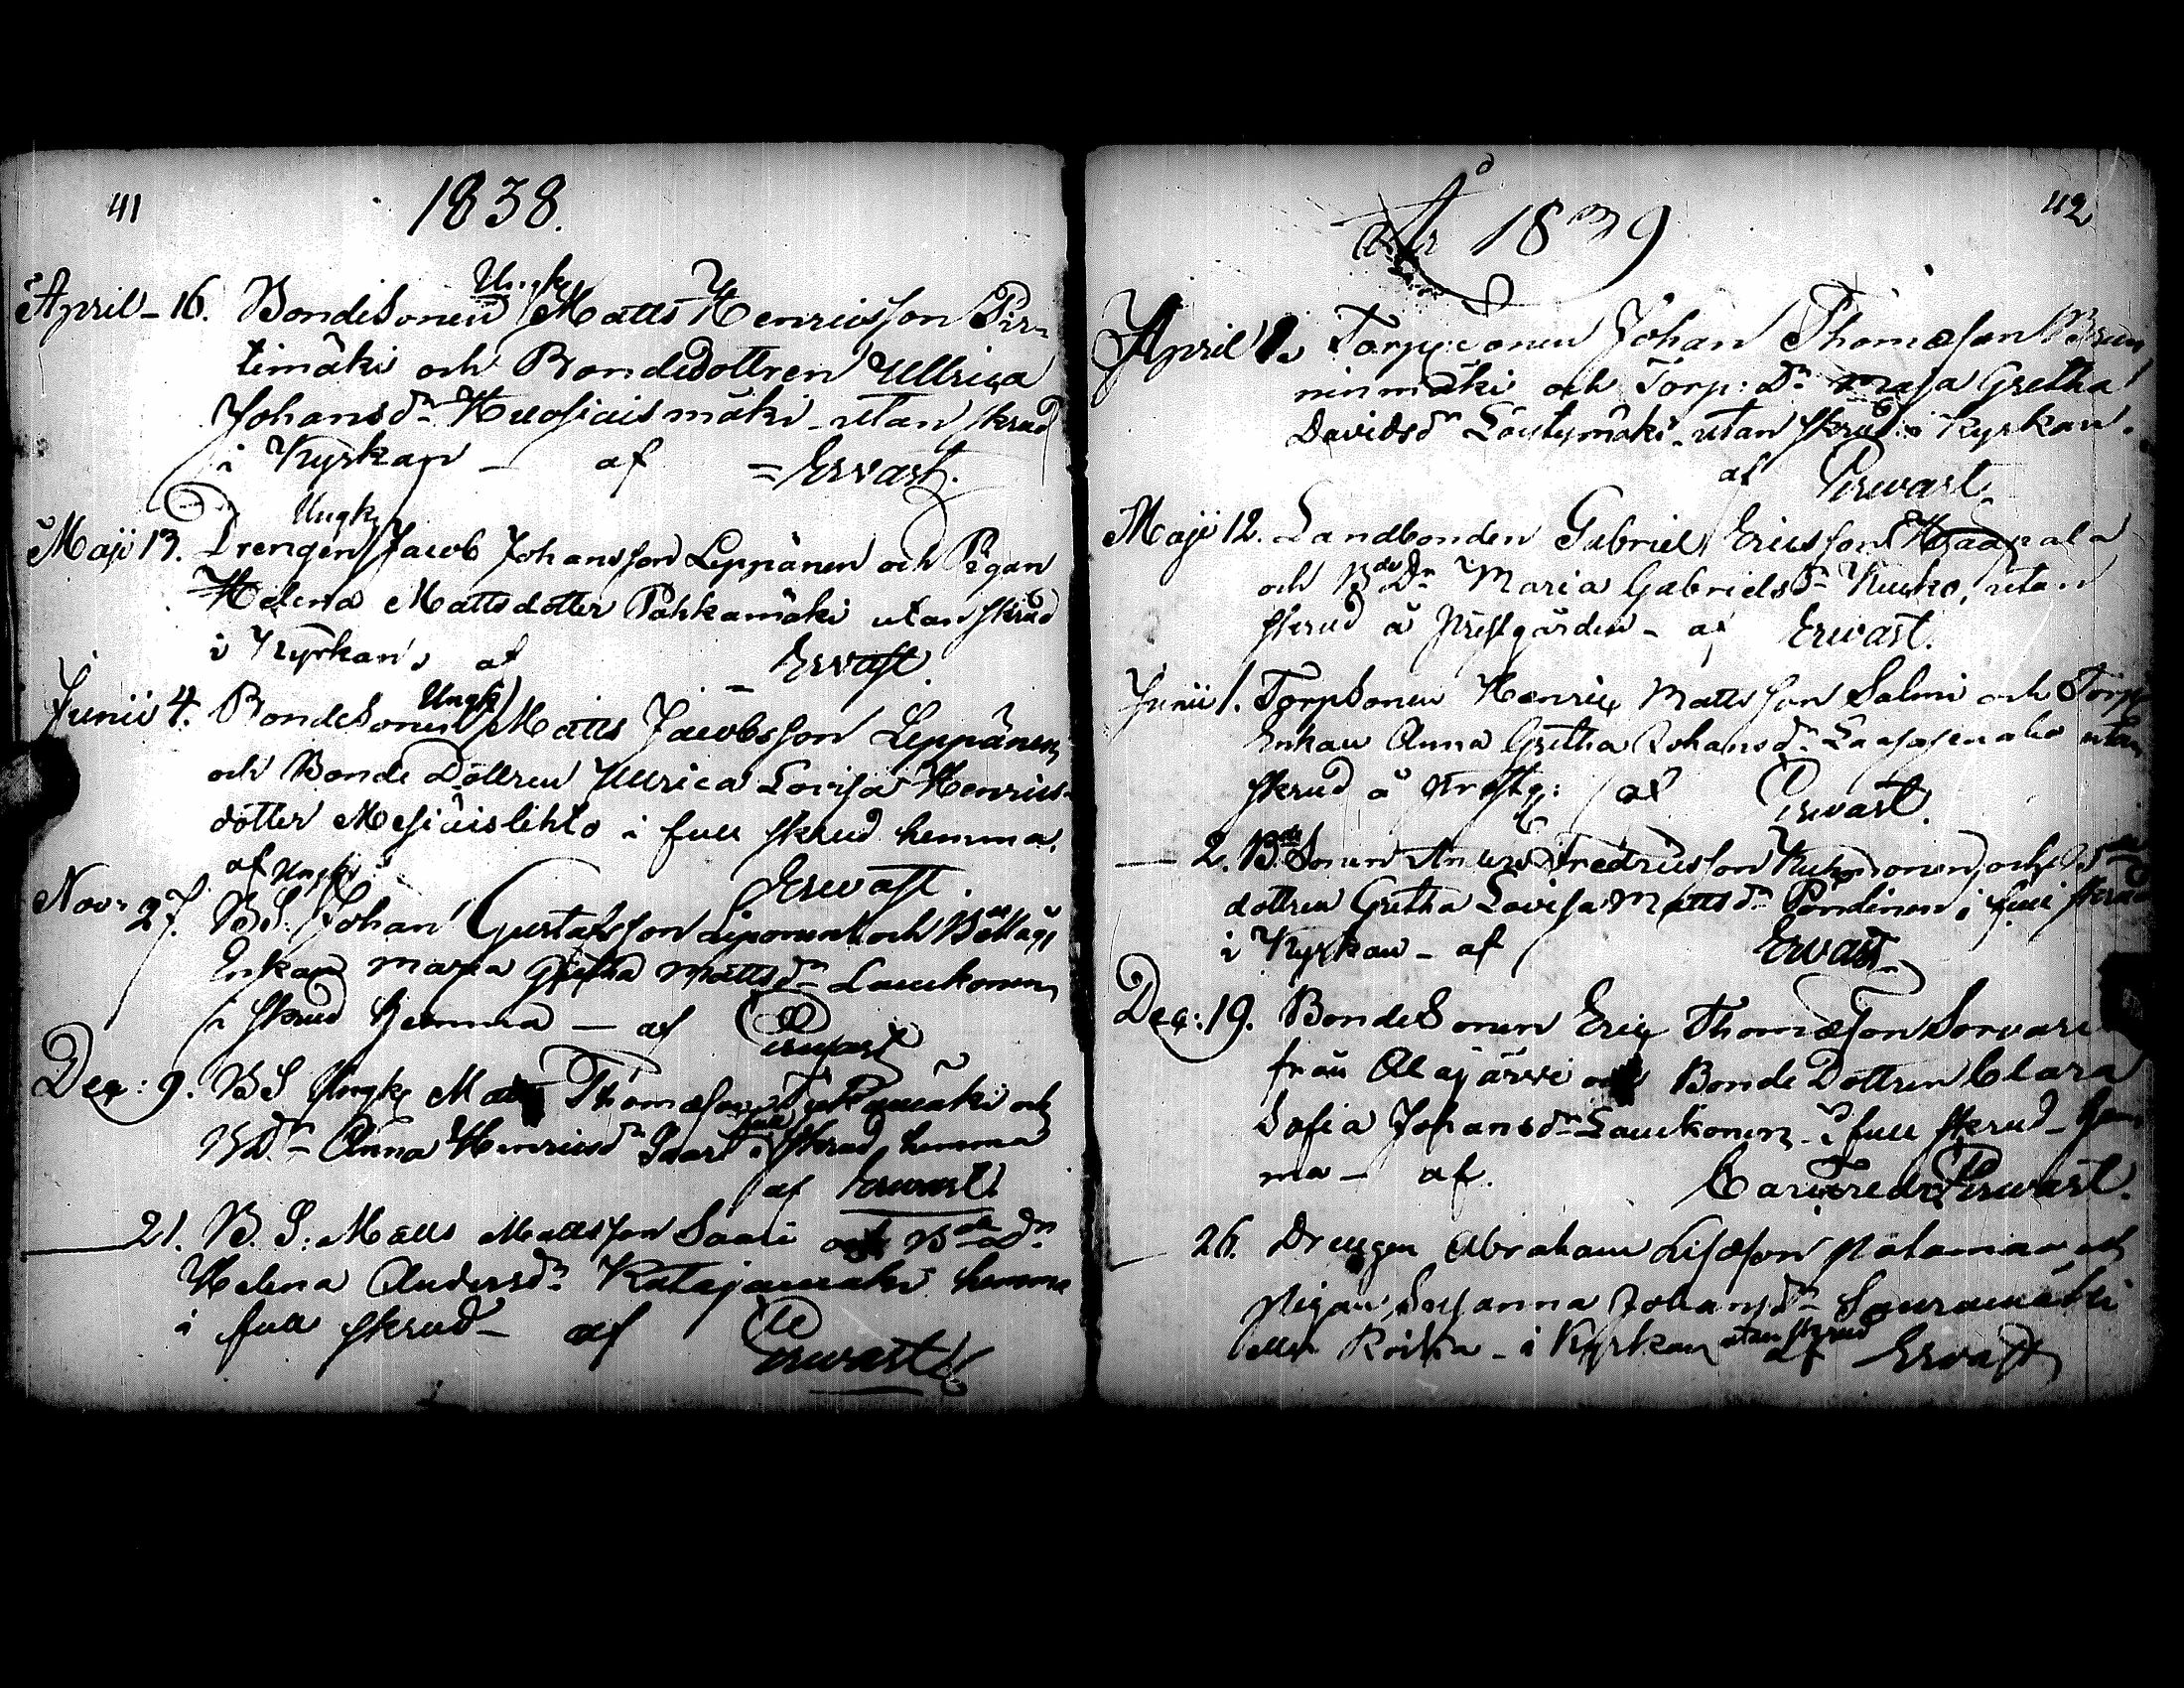 41
1838.
April - 16. Bondesonen Ungk. Matts Henricsson Pir-
timäki och Bondedottren Ullrica
Johansdr Kuosiaismäki - utan skrud
i Kyrkan - af = Ervast.
Maji 13. Drengen Ungk. Jacob Johansson Leppänen och Pigan
Helena Mattsdotter Pahkamäki utan skrud
i Kyrkan, af Ervast.
Junii 4. Bondesonen Ungk. Matts Jacobsson Leppänen
och Bonde Dottren Ullrica Lovisa Henrics-
dotter Mesiäislehto i full skrud hemma.
af Ervast.
Nov: 27. BS. Ungk. Johan Gustafsson Liponen och
Enkan Maria Gretha Mattsdr Laukonen
i skrud hemma - af Ervast
Dec: 9. BS Ungk. Matts Thomasson och
BDr - Anna Henricsdr Saari i full skrud hemma
af Ervast
21. B. S: Matts Mattsson Saari och Bde Dr
Helena Andersdr Katajamäki hemma
i full skrud - af Ervast
42
År 1839
April 1. Torpsonen Johan Thomasson
ninmäki och Torp: Dr Maja Gretha
Davidsdr Löytymäki - utan skrud i Kyrkan.
af Ervast
Maji 12. Landbonden Gabriel Ericsson Haapala
och Bde Dr Maria Gabrielsdr Kucko, utan
skrud å Prestgården - af Ervast.
Junii 1. Torpsonen Henric Mattsson Salmi och Torp
Enkan Anna Gretha Johansdr utan
skrud å Prestg: af Ervast.
— 2. Bde Sonen Anders Fredricsson och
dottren Gretha Lovisa Mattsdr i full skrud
i Kyrkan - af Ervast
Dec: 19. BondeSonen Eric Thomasson Sorvari
från Alajärvi och Bonde Dottren Clara
Sofia Johansdr Laukonen - i full skrud - hem
ma - af. Carl Fredr. Ervast.
26. Drengen Abraham
Pigan Susanna Johansdr Sauramäki
eller Koiha - i Kyrkan utan skrud af Ervast